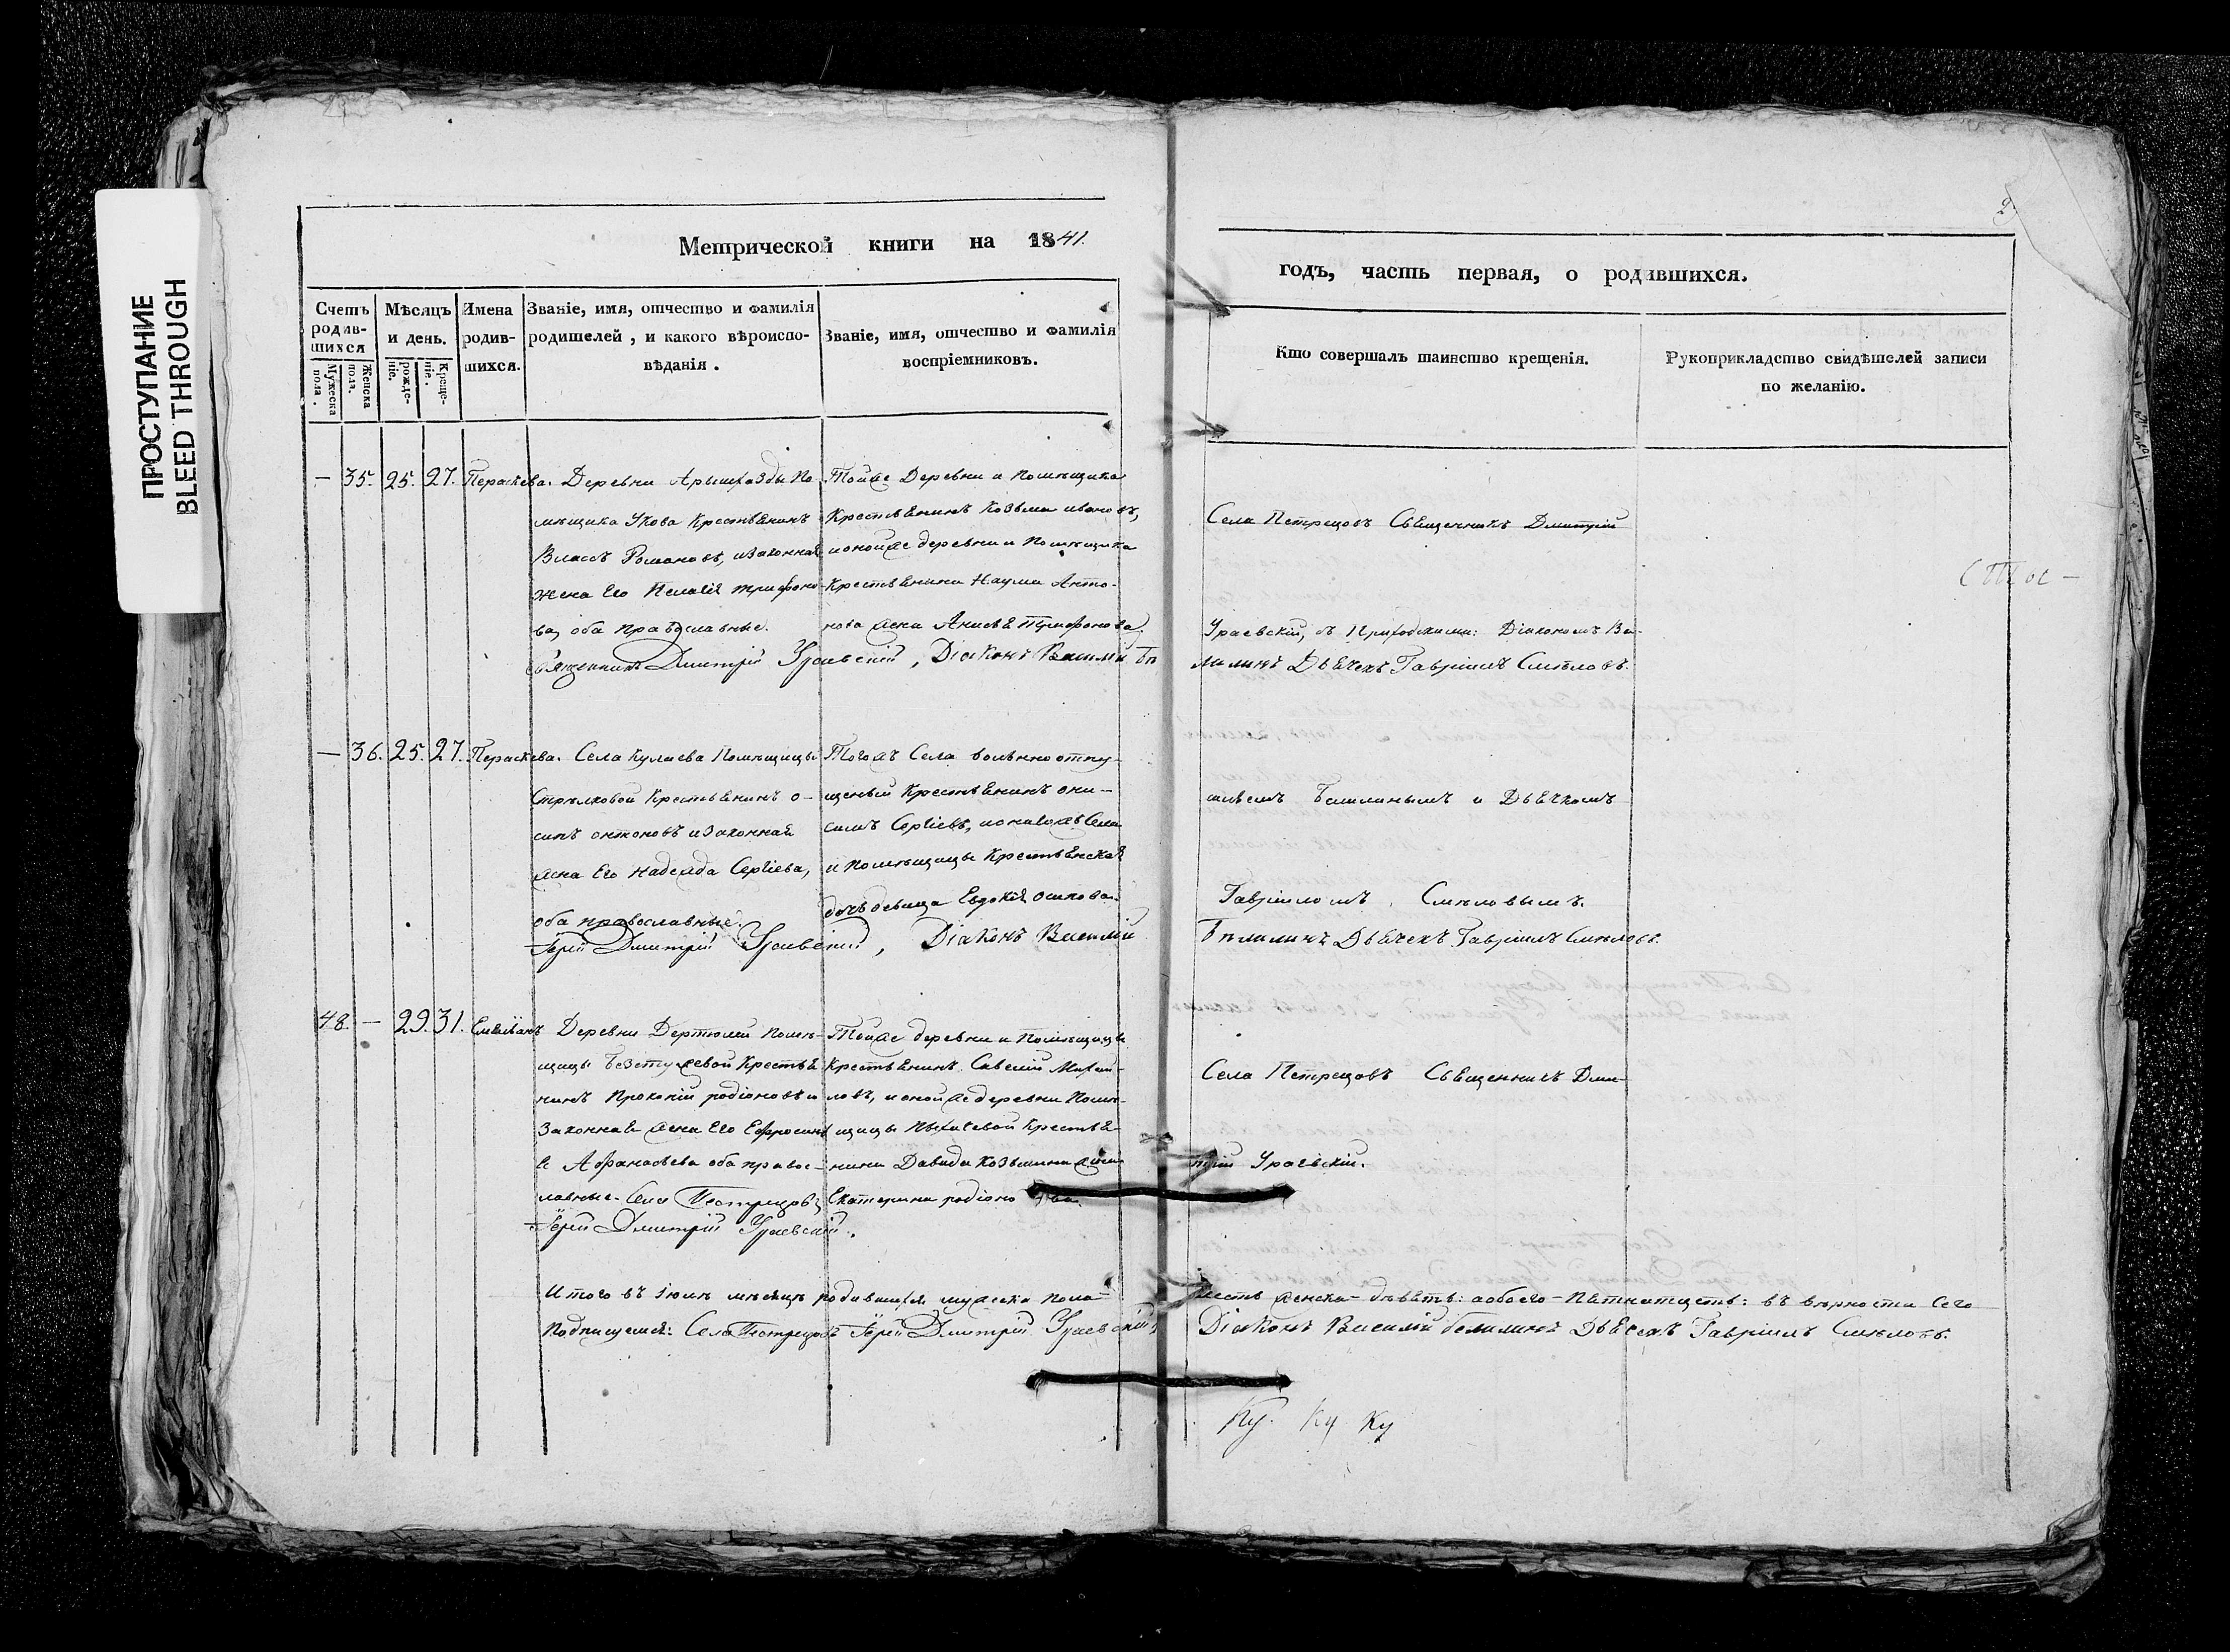 ПРОСТУПАНИЕ
BLEED THROUGH
Метрической книги на 1841.
годъ, часть первая, о родившихся.
Счетъ родив-шихся
Мужеска пола.
Женска пола.
Мѣсяцъ и день.
рожде-ніе.
Креще-ніе.
Имена родив-шихся.
Званіе, имя, отчество и фамилія
родителей, и какого вѣроиспо-
вѣданія.
Званіе, имя, отчество и фамилія
воспріемниковъ.
Кто совершалъ таинство крещенія.
Рукоприкладство свидѣтелей записи
по желанію.
— 35. 25. 27. Параскева.
Деревни По-
мѣщика Укова Крестьянинъ
Власъ Романовъ, изаконная
жена Его Пелагія трифоно-
ва, оба православные.
Тойже Деревни и помѣщика
Крестьянинъ Козьма ивановъ,
ионойже деревни и Помѣщика
Крестьянина Наума Анто-
нова жена Анисья Трифонова.
Села Пестрецовъ Священникъ Дмитрій
Ураевскій, съ Приходскими: Діакономъ Ва-
Священникъ Дмитрій Ураевскій, Діаконъ Василій Бѣ
лилинъ Дьячекъ Гавріилъ Смѣловъ.
— 36. 25. 27. Параскева.
Села Кулаева Помѣщицы
Стрѣлковой Крестьянинъ о-
сипъ онтоновъ изаконная
жена Его Надежда Сергіева,
оба православные.
Тогожъ Села вольноотпу-
щеный Крестьянинъ они-
симъ Сергіевъ, ионагожъ Села
и помѣщицы Крестьянская
дочь девица Евдокія осипова.
сильемъ Белилинымъ и Дьячкомъ
Гавріиломъ Смѣловымъ.
Іерей Дмитрій Ураевскій, Діаконъ Василій
Бѣлилинъ Дьячекъ Гавріилъ Смѣловъ.
48. — 29. 31. Емельянъ
Деревни Дертюлей помѣ-
щицы Безстужевой Крестья
нинъ Прокопій родіоновъ и
Законная жена Его Ефросинь
я Афанасьева оба правос-
лавные. Села Пестрецовъ
Іерей Дмитрій Ураевскій.
Тойже деревни и Помѣщицы
Крестьянинъ Савелій Михаи-
ловъ, ионойже деревни Помѣ-
щицы Крестья-
нина Давида Козьмина жена
Екатерина родіонова.
Села Пестрецовъ Священникъ Дми-
трій Ураевскій.
Итого въ Іюлѣ мѣсяцѣ родившихся мужеска пола — шесть женска — дѣвять: аобоего — пятнатцеть: въ вѣрности сего
подписуемся: Села Пестрецовъ Іерей Дмитрій Ураевскій, Діаконъ Василій белилинъ Дьячекъ Гавріилъ Смѣловъ.
Ку. Ку Ку